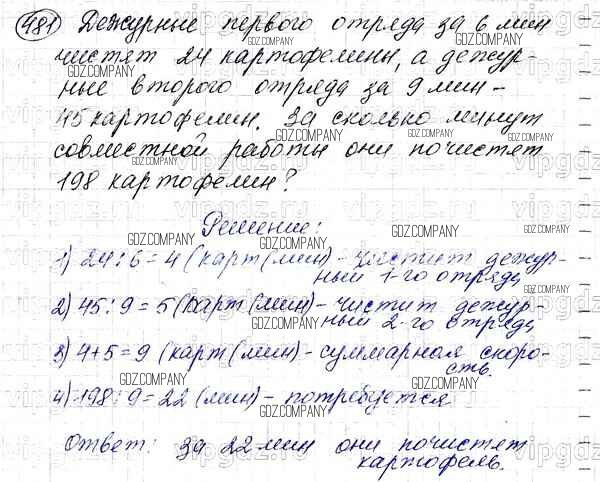 481 Дежурные первого отряда за 6 мин
чистят 24 картофелины, а дежур-
ные второго отряда за 9 мин -
45 картофелин. За сколько минут
совместной работы они почистят
198 картофелин?
Решение:
1) 24:6=4 (карт/мин) - чистит дежур-
ный 1-го отряда
2) 45:9=5 (карт/мин) - чистит дежур-
ный 2-го отряда
3) 4+5=9 (карт/мин) - суммарная скоро-
сть.
4) 198:9=22 (мин) - потребуется
Ответ: за 22 мин они почистят
картофель.
GDZ.COMPANY
vipgdz.ru